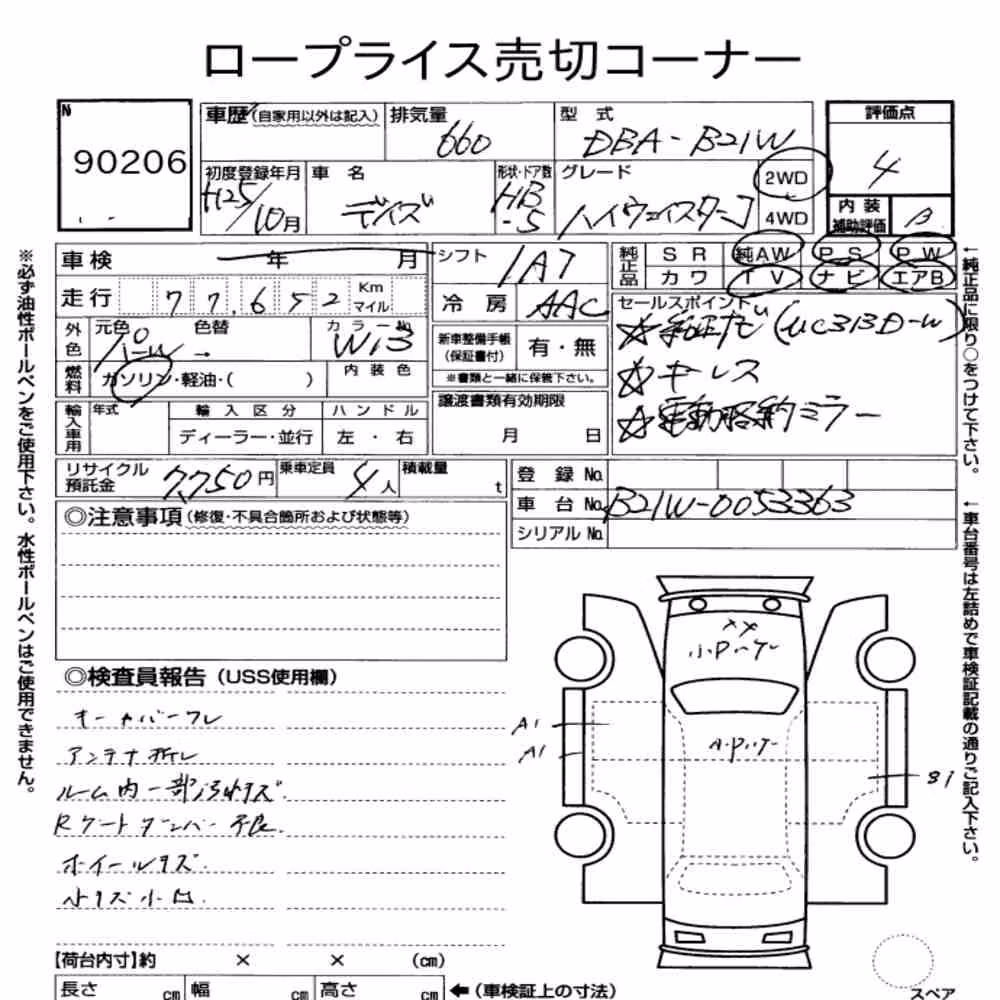 ロープライス売切コーナー
N
90206
車歴(自家用以外は記入)
排気量
660
型 式
DBA-B21W
評価点
4
初度登録年月
H25/10月
車 名
デイズ
形状・ドア数
HB-5
グレード
ハイウェイスターJ
2WD
4WD
内 装
補助評価
B
車 検 年 月
シフト
IAT
純正品
S R
純AW
P S
P W
カワ
T V
ナビ
エアB
走 行
77,652
Km
マイル
冷 房
AAC
セールスポイント
☆純正ナビ(MC313D-W)
☆キーレス
☆電動格納ミラー
外色
元色
パール
色替
→
カラーNo
W13
新車整備手帳
(保証書付)
有・無
※書類と一緒に保管下さい。
燃料
ガソリン・軽油・( )
内 装 色
輸入車用
年式
輸 入 区 分
ハ ン ド ル
ディーラー・並行
左 ・ 右
譲渡書類有効期限
月 日
リサイクル
預託金
7,750円
乗車定員
4人
積載量
t
登 録 No.
車 台 No.
B21W-0053363
シリアル No.
◎注意事項(修復・不具合箇所および状態等)
◎検査員報告(USS使用欄)
オーナバーフレ
アンテナ折レ
ルーム内一部汚れキズ.
Rゲートダンパー不良.
ホイールキズ.
小キズ小凹
XX
小Pハゲー
A・Pハゲー
A1
A1
B1
【荷台内寸】約 × × (cm)
長さ cm
幅 cm
高さ cm
←(車検証上の寸法)
スペア
※必ず油性ボールペンをご使用下さい。水性ボールペンはご使用できません。
←純正品に限り○をつけて下さい。
←車台番号は左詰めで車検証記載の通りご記入下さい。